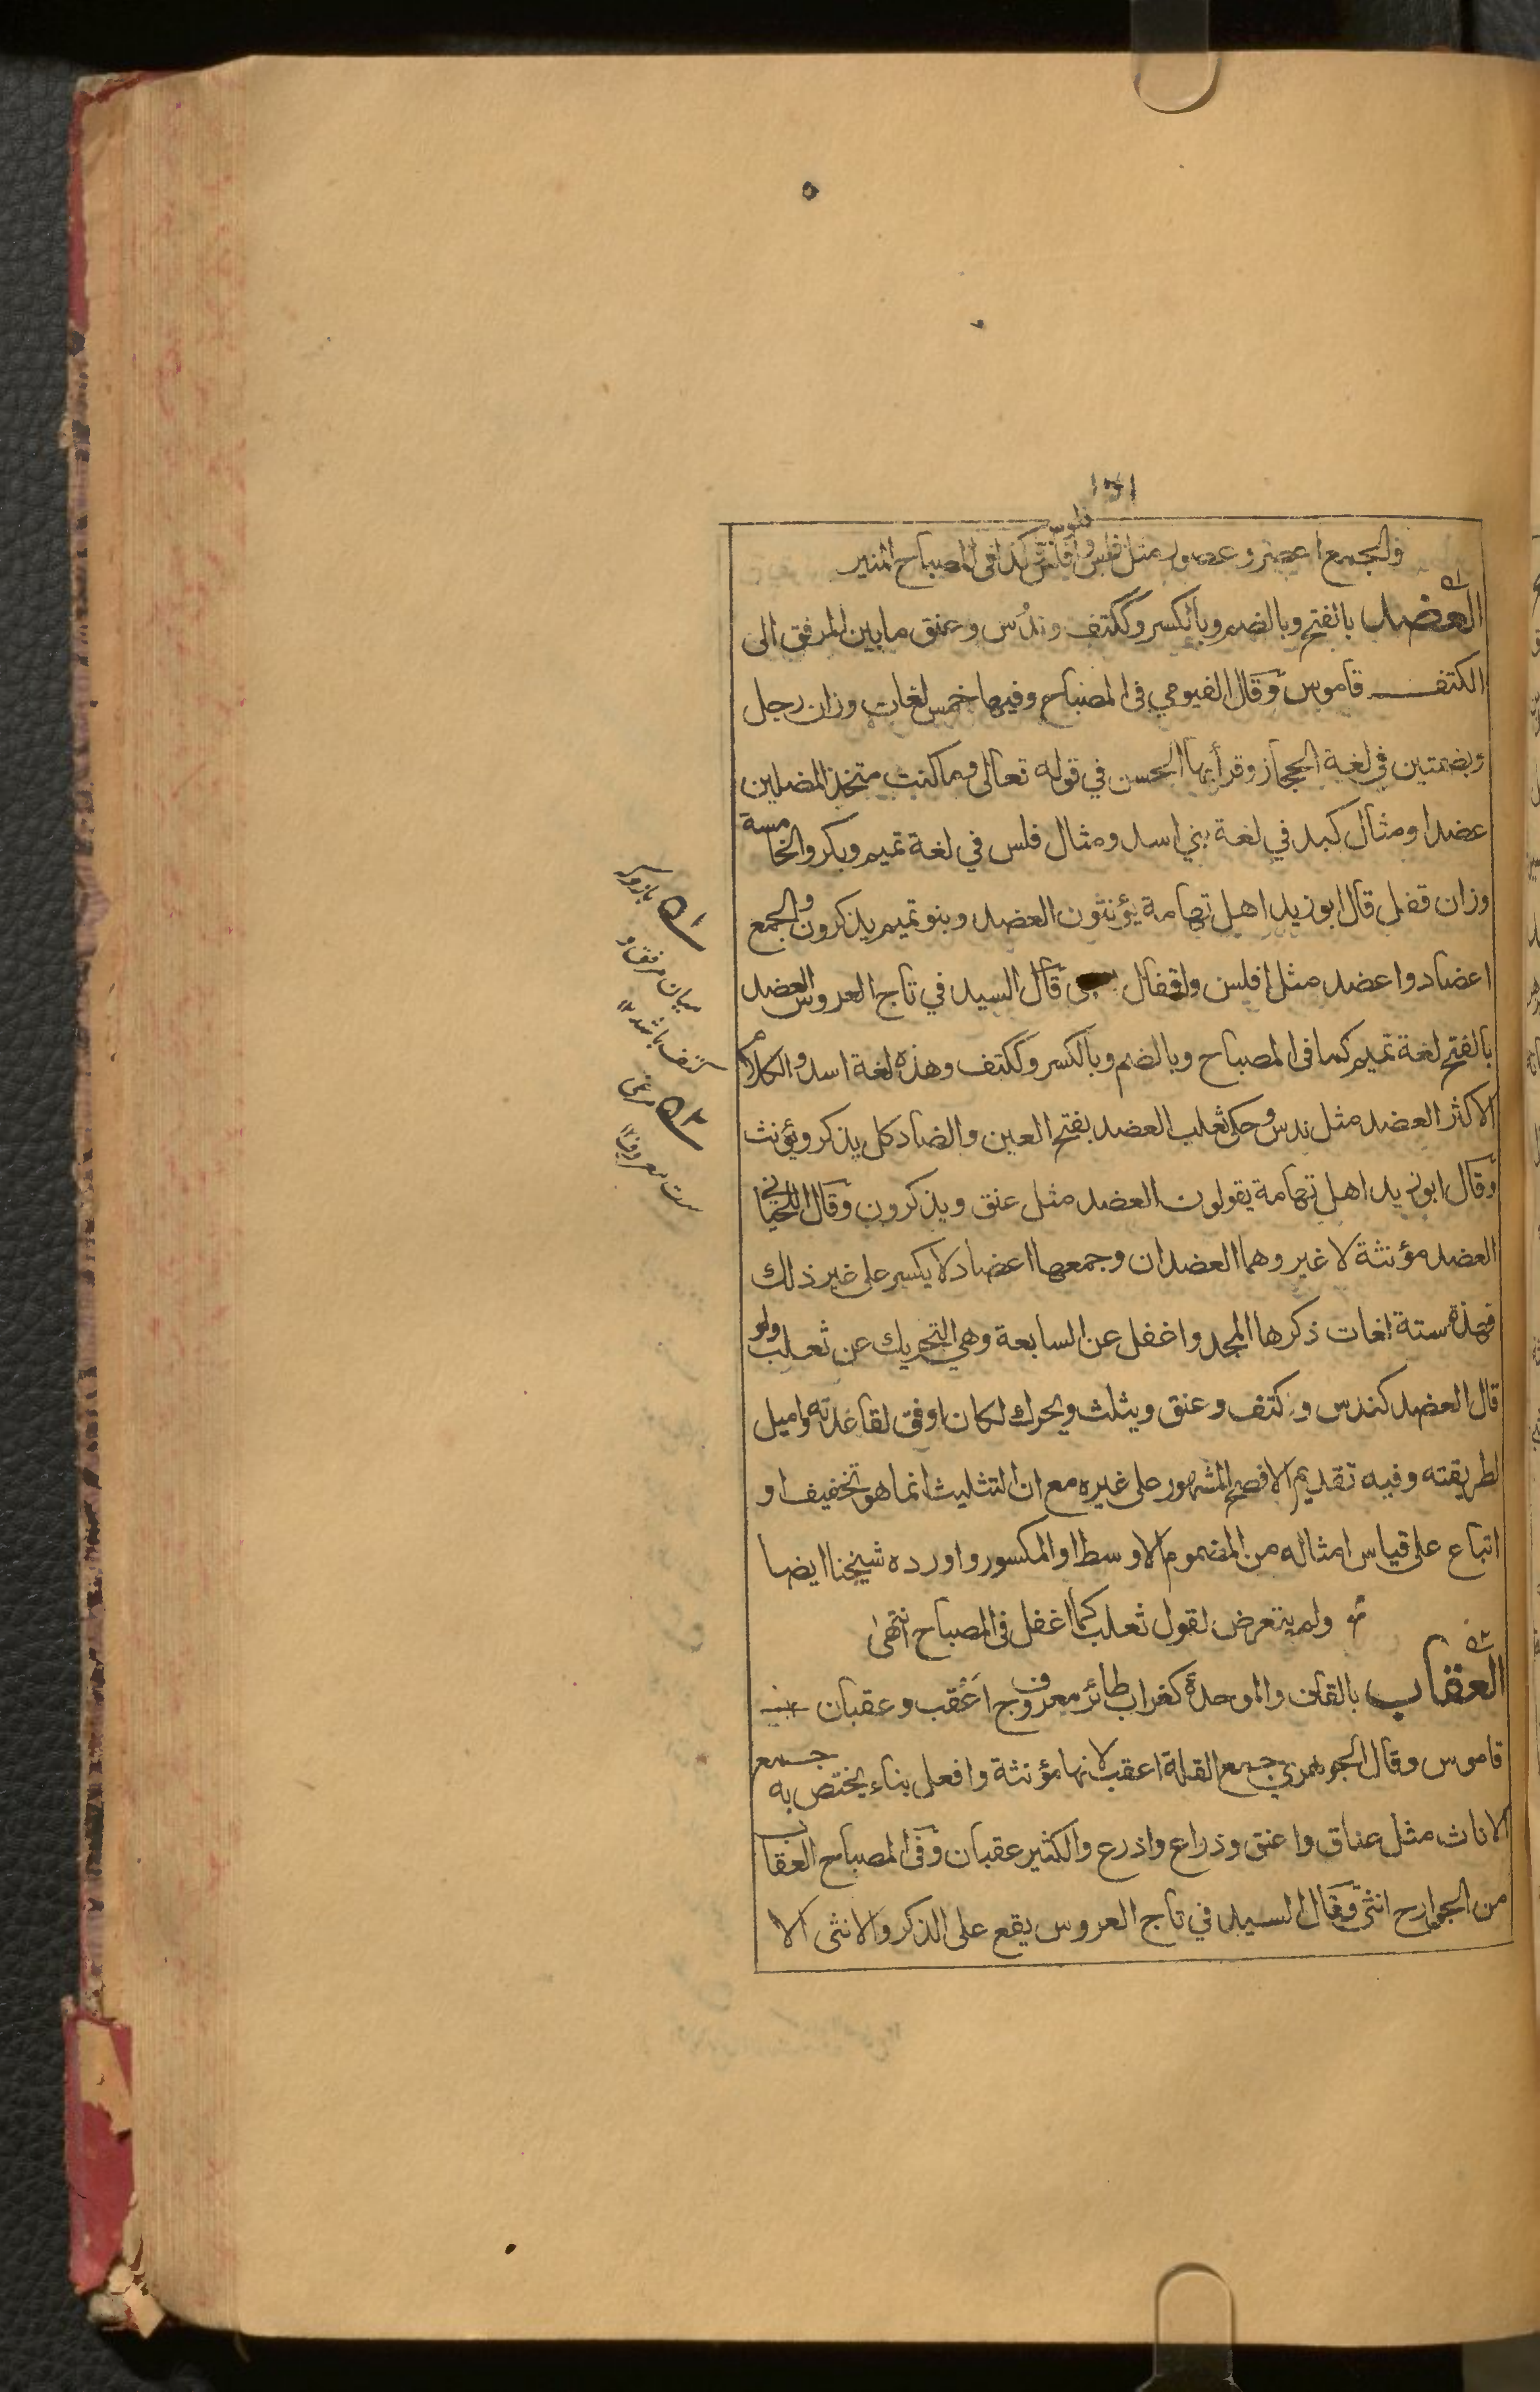 والجمع اعصر وعصور مثل فلس وافلس وفلوس كذا فى المصباح المنير
العضد بالفتح وبالضم وبالكسر وككتف وندُس وعنق ما بين المرفق الى
الكتف قاموس وقال الفيومي فى المصباح وفيها خمس لغات وزان رجل
وبضمتين في لغة الحجاز وقرأ بها الحسن في قوله تعالى وما كنت متخذ المضلين
عضدا ومثال كبد في لغة بني اسد ومثال فلس في لغة تميم وبكر والخامسة
وزان قفل قال ابو زيد اهل تهامة يؤنثون العضد وبنو تميم يذكرون والجمع
اعضاد واعضد مثل افلس واقفال قال السيد في تاج العروس العضد
بالفتح لغة تميم كما فى المصباح وبالضم وبالكسر وككتف وهذه لغة اسد والكلام
الاكثر العضد مثل ندس وحكى ثعلب العضد بفتح العين والضاد كل يذكر ويؤنث
وقال ابو زيد اهل تهامة يقولون العضد مثل عنق ويذكرون وقال اللحياني
العضد مؤنثة لا غير وهما العضدان وجمعها اعضاد لا يكسر على غير ذلك
فهذه ستة لغات ذكرها المجد واغفل عن السابعة وهي التحريك عن ثعلب ولو
قال العضد كندس وكتف وعنق ويثلث ويحرك لكان اوفق لقاعدته واميل
لطريقته وفيه تقديم الافصح المشهور على غيره مع ان التثليث انما هو تخفيف او
اتباع على قياس امثاله من المضموم الاوسط او المكسور واورده شيخنا ايضا
ولم يتعرض لقول ثعلب كما اغفل فى المصباح انتهى
العقاب بالقاف والموحدة كغراب طائر معروف ج اَعْقب وعقبان
قاموس وقال الجوهري جمع القلة اعقب لانها مؤنثة وافعل بناء يختص به جمع
الاناث مثل عناق واعنق وذراع واذرع والكثير عقبان وفى المصباح العقاب
من الجوارح انثى وقال السيد في تاج العروس يقع على الذكر والانثى الا
۵۱ بازو كه
ميان مرفق و
كتف باشد
۵۲ مرغى
ست معروف